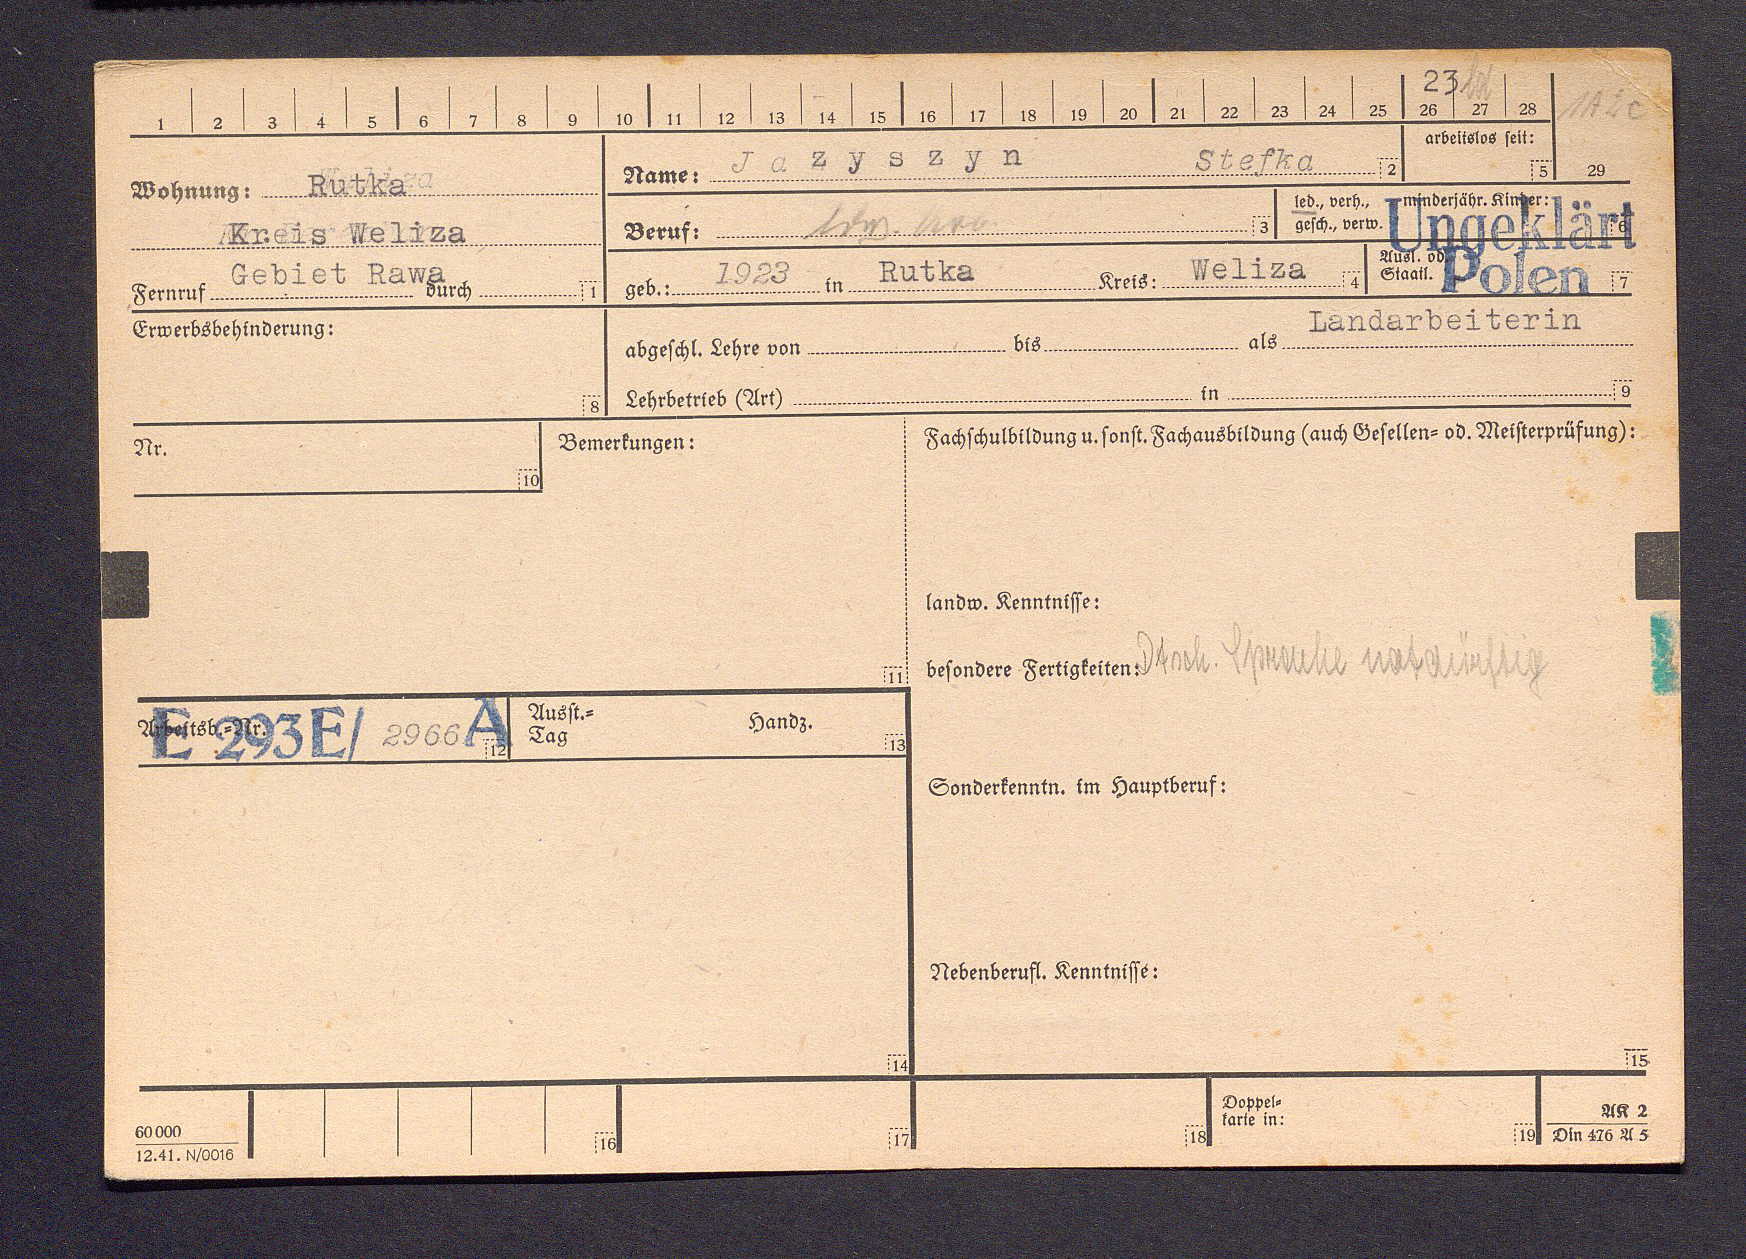 1 2 3 4 5 6 7 8 9 10 11 12 13 14 15 16 17 18 19 20 21 22 23 24 25 26 27 28
23
1A2c
arbeitslos seit:
5
29
Wohnung: Rutka
Kreis Weliza
Gebiet Rawa
Fernruf durch 1
Name: Jazyszyn Stefka 2
Beruf: 3
led., verh., gesch., verw.
minderjähr. Kinder: 6
Ungeklärt
geb.: 1923 in Rutka Kreis: Weliza 4
Ausl. od. Staatl. Polen 7
Erwerbsbehinderung:
8
Landarbeiterin
abgeschl. Lehre von bis als
Lehrbetrieb (Art) in 9
Nr.
10
Bemerkungen:
11
Fachschulbildung u. sonst. Fachausbildung (auch Gesellen- od. Meisterprüfung):
landw. Kenntnisse:
besondere Fertigkeiten: Dtsch. Sprache notdürftig
Arbeitsb.-Nr.
E 293E/ 2966 A
12
Ausst.-
Tag
Handz.
13
Sonderkenntn. im Hauptberuf:
Nebenberufl. Kenntnisse:
14
15
60 000
12.41. N/0016
16
17
18
Doppel-
karte in:
19
AK 2
Din 476 A 5